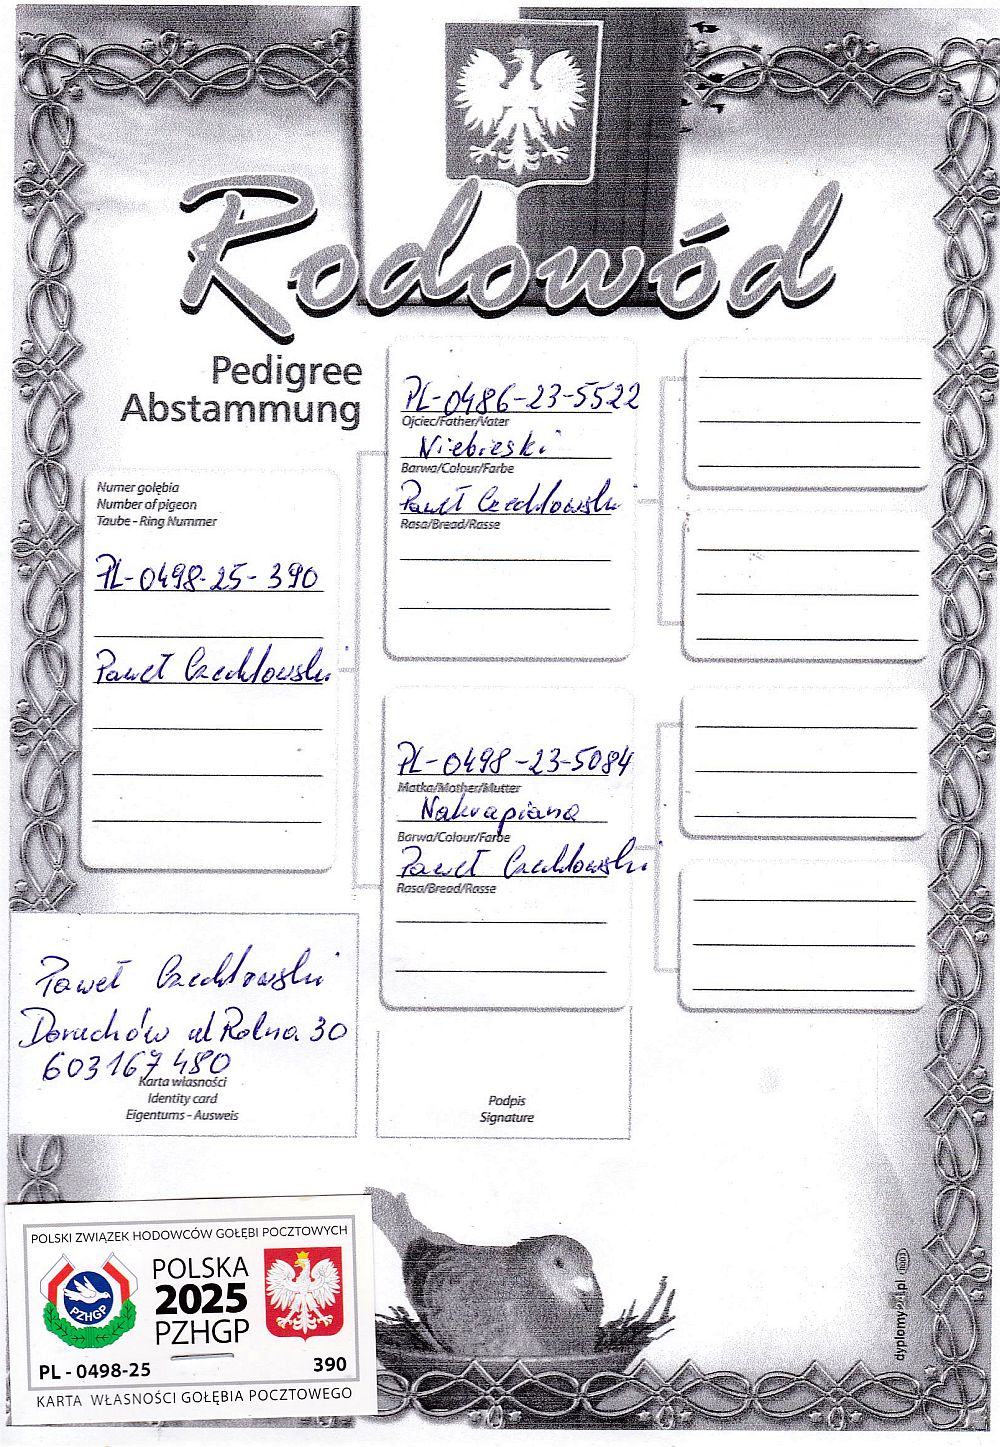 Rodowód
Pedigree
Abstammung
Numer gołębia
Number of pigeon
Taube - Ring Nummer
PL-0498-25-390
Paweł Czechłowski
PL-0486-23-5522
Ojciec/Father/Vater
Niebieski
Barwa/Colour/Farbe
Paweł Czechłowski
Rasa/Bread/Rasse
PL-0498-23-5084
Matka/Mother/Mutter
Nakrapiana
Barwa/Colour/Farbe
Paweł Czechłowski
Rasa/Bread/Rasse
Paweł Czechłowski
Doruchów ul Rolna 30
603167480
Karta własności
Identity card
Eigentums - Ausweis
Podpis
Signature
POLSKI ZWIĄZEK HODOWCÓW GOŁĘBI POCZTOWYCH
PZHGP
POLSKA
2025
PZHGP
PL - 0498-25
390
KARTA WŁASNOŚCI GOŁĘBIA POCZTOWEGO